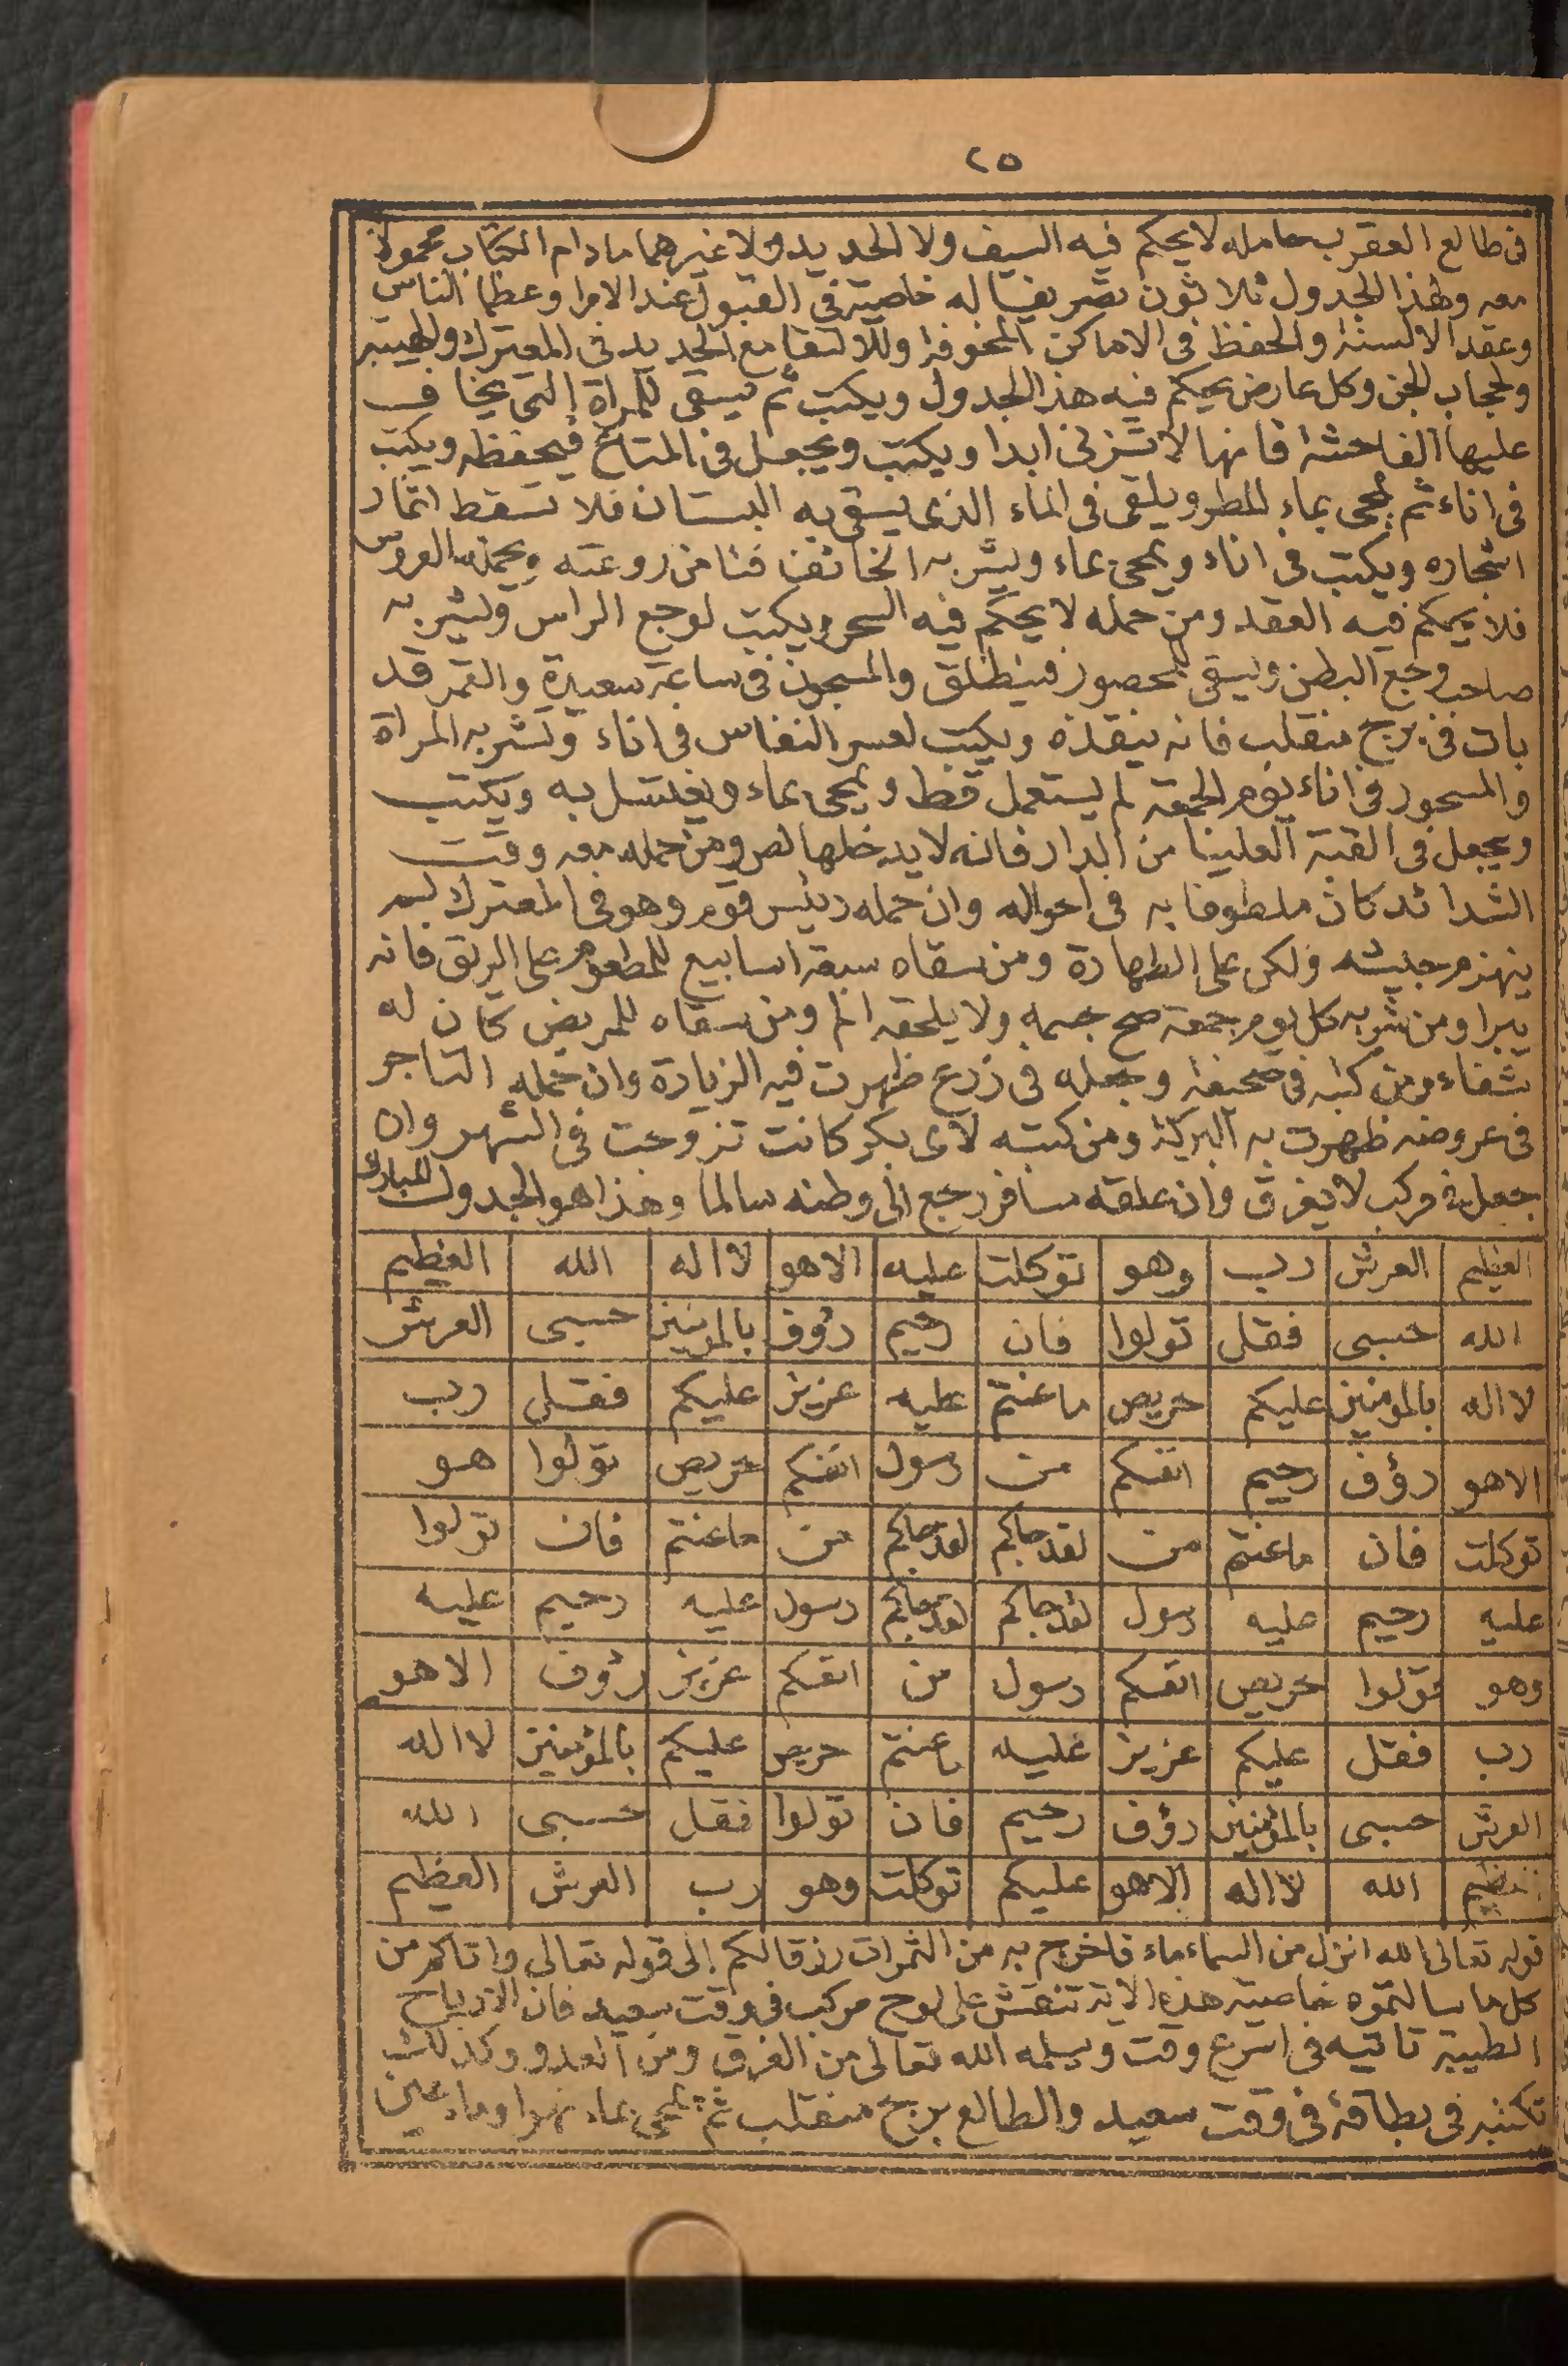 ٢٥
فى طالع العقرب حامله لا يحكم فيه السيف ولا الحديد ولا غيرهما مادام الكتاب محمولا
معه ولهذا الجدول ثلاثون تصريفا له خاصية فى القبول عند الامرا وعظما الناس
وعقد الالسنة والحفظ فى الاماكن المخوفة وللالتقا مع الحديد فى المعترك وللهيبة
ولحجاب الجن وكل عارض يحكم فيه هذا الجدول ويكتب ثم يسقى للمراة التى يخاف
عليها الفاحشة فانها لا تزنى ابدا ويكتب ويجعل فى المتاع فيحفظه ويكتب
فى اناء ثم يمحى بماء المطر ويلقى فى الماء الذى يسقى به البستان فلا تسقط اثمار
اشجاره ويكتب فى اناء ويمحى بماء ويشربه الخائف فيامن روعته ويحمله العروس
فلا يحكم فيه العقد ومن حمله لا يحكم فيه السحر ويكتب لوجع الراس ولشربه
صاحب وجع البطن ويسقى لمحصور فينطلق والمسجون فى ساعة سعيدة والقمر قد
بات فى برج منقلب فانه ينقذه ويكتب لعسر النفاس فى اناء وتشربه المراة
والمسحور فى اناء يوم الجمعة لم يستعمل قط ويمحى بماء ويغتسل به ويكتب
ويجعل فى القبة العلينا من الدار فانه لا يدخلها لص ومن حمله معه وقت
الشدائد كان ملطوفا به فى احواله وان حمله رئيس قوم وهو فى المعترك لم
ينهزم جيشه ولكن على الطهارة ومن سقاه سبعة اسابيع للمطعوم على الريق فانه
يبرا ومن شربه كل يوم جمعة صح جسمه ولا يلحقه الم ومن سقاه للمريض كان له
شفاء ومن كتبه فى صحيفة وجعله فى زرع ظهرت فيه الزيادة وان حمله التاجر
فى عروضه ظهرت به البركة ومن كتبه لاى بكر كانت تزوجت فى الشهر وان
جعل فى مركب لا يغرق وان علقه مسافر رجع الى وطنه سالما وهذا هو الجدول المبارك
العظيم العرش رب وهو توكلت عليه الاهو لا اله الله العظيم
الله حسبى فقل تولوا فان رحيم رؤف بالمومنين حسبى العرش
لا اله بالمومنين عليكم حريص ماعنتم عليه عزيز عليكم فقل رب
الاهو رؤف رحيم انفسكم من رسول انفسكم حريص تولوا هو
توكلت فان ماعنتم من لقد جاكم لقد جاكم من ماعنتم فان تولوا
عليه رحيم عليه رسول لقد جاكم لقد جاكم رسول عليه رحيم عليه
وهو تولوا حريص انفسكم رسول من انفسكم عزيز رؤف الاهو
رب فقل عليكم عزيز عليه ماعنتم حريص عليكم بالمؤمنين لا اله
العرش حسبى بالمؤمنين رؤف رحيم فان تولوا فقل حسبى الله
العظيم الله لا اله الاهو عليكم توكلت وهو رب العرش العظيم
قوله تعالى الله انزل من السماء ماء فاخرج به من الثمرات رزقا لكم الى قوله تعالى واتاكم من
كل ما سالتموه خاصية هذه الاية تنقش على لوح مركب فى وقت سعيد فان الارياح
الطيبة تاتيه فى اسرع وقت ويسلمه الله تعالى من الغرق ومن العدو وكذلك
تكتبه فى بطاقة فى وقت سعيد والطالع برج منقلب ثم يمحى بماء نهر او ماء عين